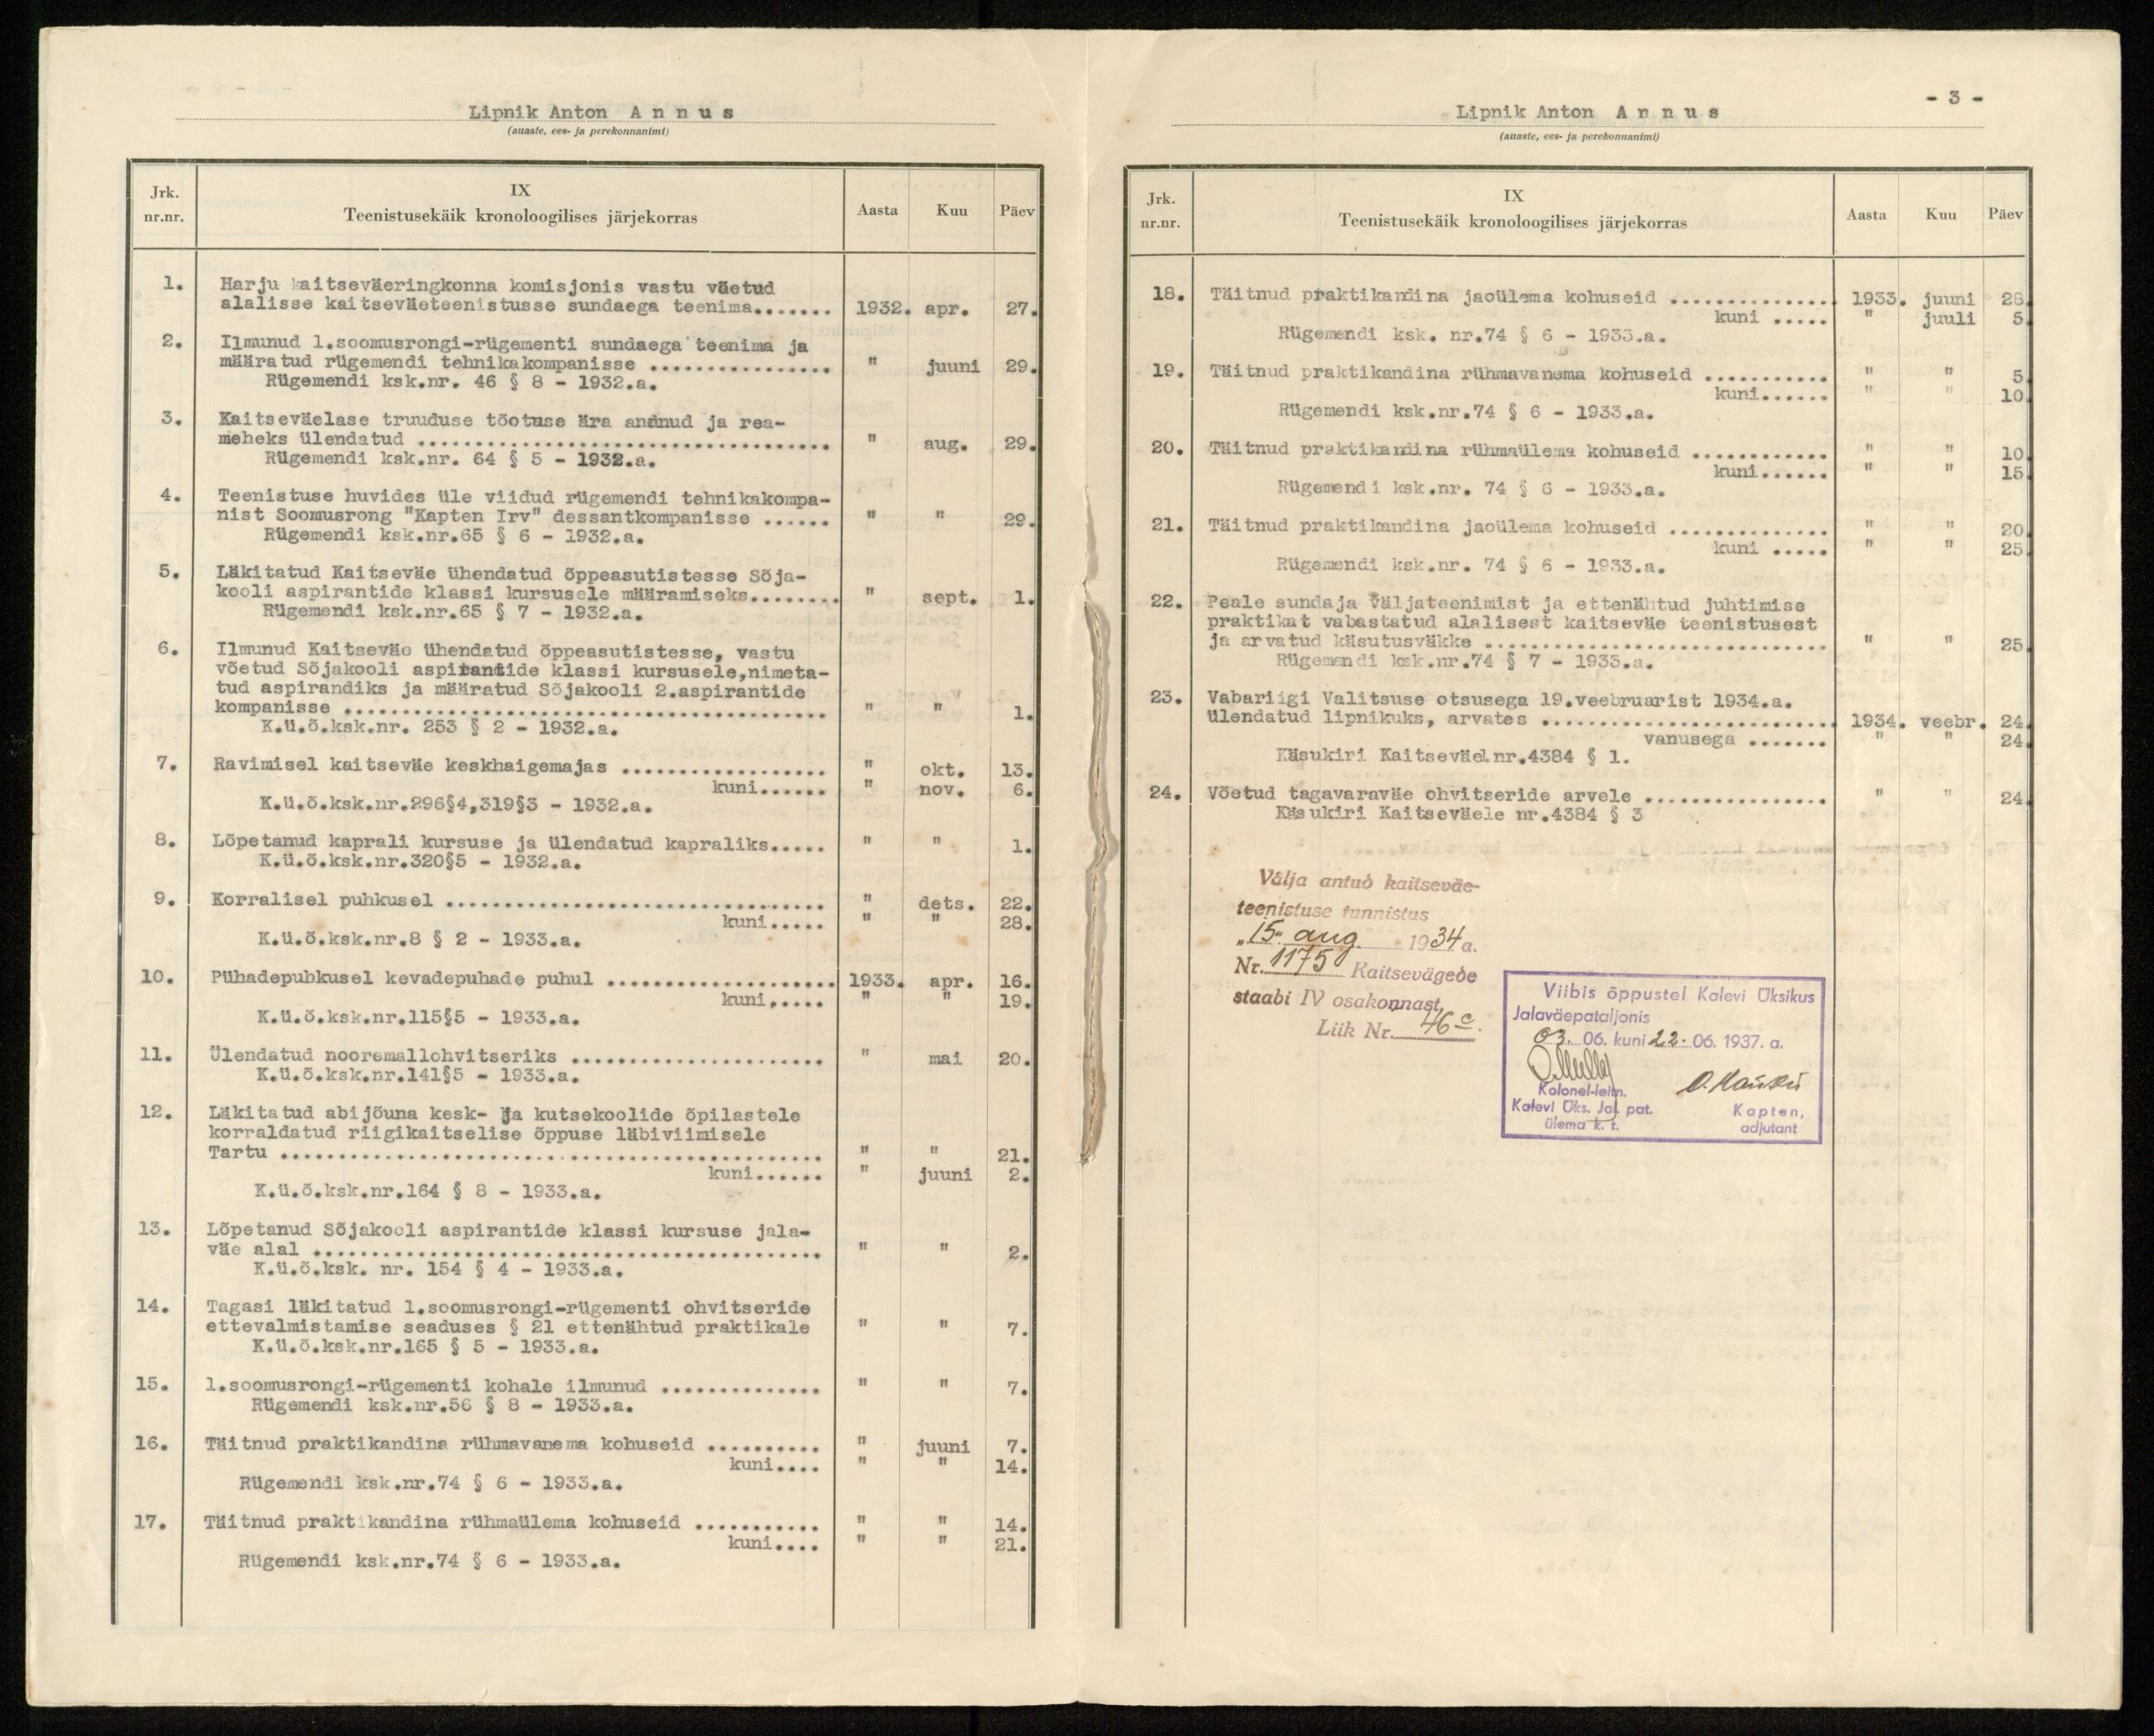 Lipnik Anton A n n u s
(auaste, ees- ja perekonnanimi)
Jrk. nr.nr.
IX
Teenistusekäik kronoloogilises järjekorras
Aasta Kuu Päev
1. Harju kaitseväeringkonna komisjonis vastu võetud
alalisse kaitseväeteenistusse sundaega teenima....... 1932. apr. 27.
2. Ilmunud 1.soomusrongi-rügementi sundaega teenima ja
määratud rügemendi tehnikakompanisse ................ " juuni 29.
Rügemendi ksk.nr. 46 § 8 - 1932.a.
3. Kaitseväelase truuduse tõotuse ära andnud ja rea-
meheks ülendatud .................................... " aug. 29.
Rügemendi ksk.nr. 64 § 5 - 1932.a.
4. Teenistuse huvides üle viidud rügemendi tehnikakompa-
nist Soomusrong "Kapten Irv" dessantkompanisse ...... " " 29.
Rügemendi ksk.nr.65 § 6 - 1932.a.
5. Läkitatud Kaitseväe ühendatud õppeasutistesse Sõja-
kooli aspirantide klassi kursusele määramiseks........ " sept. 1.
Rügemendi ksk.nr.65 § 7 - 1932.a.
6. Ilmunud Kaitseväe ühendatud õppeasutistesse, vastu
võetud Sõjakooli aspirantide klassi kursusele,nimeta-
tud aspirandiks ja määratud Sõjakooli 2.aspirantide
kompanisse .......................................... " " 1.
K.ü.õ.ksk.nr. 253 § 2 - 1932.a.
7. Ravimisel kaitseväe keskhaigemajas .................. " okt. 13.
kuni...... " nov. 6.
K.ü.õ.ksk.nr.296§4,319§3 - 1932.a.
8. Lõpetanud kaprali kursuse ja ülendatud kapraliks..... " " 1.
K.ü.õ.ksk.nr.320§5 - 1932.a.
9. Korralisel puhkusel ................................. " dets. 22.
kuni..... " " 28.
K.ü.õ.ksk.nr.8 § 2 - 1933.a.
10. Pühadepuhkusel kevadepuhade puhul .................... 1933. apr. 16.
kuni,.... " " 19.
K.ü.õ.ksk.nr.115§5 - 1933.a.
11. Ülendatud nooremallohvitseriks ...................... " mai 20.
K.ü.õ.ksk.nr.141§5 - 1933.a.
12. Läkitatud abijõuna kesk- ja kutsekoolide õpilastele
korraldatud riigikaitselise õppuse läbiviimisele
Tartu ............................................... " " 21.
kuni...... " juuni 2.
K.ü.õ.ksk.nr.164 § 8 - 1933.a.
13. Lõpetanud Sõjakooli aspirantide klassi kursuse jala-
väe alal ............................................ " " 2.
K.ü.õ.ksk. nr. 154 § 4 - 1933.a.
14. Tagasi läkitatud 1.soomusrongi-rügementi ohvitseride
ettevalmistamise seaduses § 21 ettenähtud praktikale " " 7.
K.ü.õ.ksk.nr.165 § 5 - 1933.a.
15. 1.soomusrongi-rügementi kohale ilmunud .............. " " 7.
Rügemendi ksk.nr.56 § 8 - 1933.a.
16. Täitnud praktikandina rühmavanema kohuseid .......... " juuni 7.
kuni.... " " 14.
Rügemendi ksk.nr.74 § 6 - 1933.a.
17. Täitnud praktikandina rühmaülema kohuseid ........... " " 14.
kuni.... " " 21.
Rügemendi ksk.nr.74 § 6 - 1933.a.
- 3 -
Lipnik Anton A n n u s
(auaste, ees- ja perekonnanimi)
Jrk. nr.nr.
IX
Teenistusekäik kronoloogilises järjekorras
Aasta Kuu Päev
18. Täitnud praktikandina jaoülema kohuseid .............. 1933. juuni 28.
kuni ..... " juuli 5.
Rügemendi ksk. nr.74 § 6 - 1933.a.
19. Täitnud praktikandina rühmavanema kohuseid ........... " " 5.
kuni...... " " 10.
Rügemendi ksk.nr.74 § 6 - 1933.a.
20. Täitnud praktikandina rühmaülema kohuseid ............ " " 10.
kuni...... " " 15.
Rügemendi ksk.nr. 74 § 6 - 1933.a.
21. Täitnud praktikandina jaoülema kohuseid .............. " " 20.
kuni ..... " " 25.
Rügemendi ksk.nr. 74 § 6 - 1933.a.
22. Peale sundaja väljateenimist ja ettenähtud juhtimise
praktikat vabastatud alalisest kaitseväe teenistusest
ja arvatud käsutusväkke .............................. " " 25.
Rügemendi ksk.nr.74 § 7 - 1933.a.
23. Vabariigi Valitsuse otsusega 19.veebruarist 1934.a.
ülendatud lipnikuks, arvates ......................... 1934. veebr. 24.
vanusega ....... " " 24.
Käsukiri Kaitseväel.nr.4384 § 1.
24. Võetud tagavaraväe ohvitseride arvele ................ " " 24.
Käsukiri Kaitseväele nr.4384 § 3
Välja antud kaitseväe-
teenistuse tunnistus
"15" aug. 1934 a.
Nr. 11750 Kaitsevägede
staabi IV osakonnast,
Liik Nr. 46 c.
Viibis õppustel Kalevi Üksikus
Jalaväepataljonis
03. 06. kuni 22. 06. 1937. a.
Kolonel-leitn.
Kalevi Üks. Jal. pat.
ülema k. t.
Kapten,
adjutant